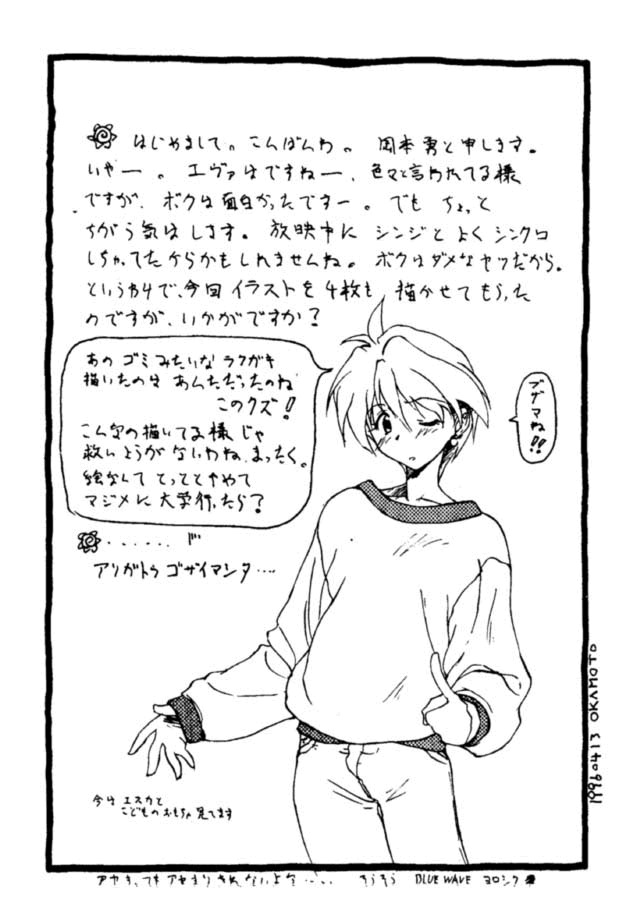 はじめまして。こんばんわ。 岡本勇と申します。
いやー。エヴァはですねー、色々と言われてる様
ですが、ボクは面白かったですー。でも ちょっと
ちがう気はします。放映中に シンジと よく シンクロ
しちゃってたからかもしれませんね。ボクはダメなヤツだから。
というわけで、今回 イラストを 4枚も 描かせて もらった
のですが、いかがですか?
あの ゴミ みたいな ラクガキ
描いたのは あんただったのね
このクズ!
こんなの描いてる様じゃ
救いようがないわね、まったく。
絵なんて とっととやめて
マジメに 大学行ったら?
ブザマね!!
・・・・・・
アリガトウ ゴザイマシタ・・・・
今は エスカと
こどものおもちゃ 見てます
19960413 OKAMOTO
そうそう BLUE WAVE ヨロシク